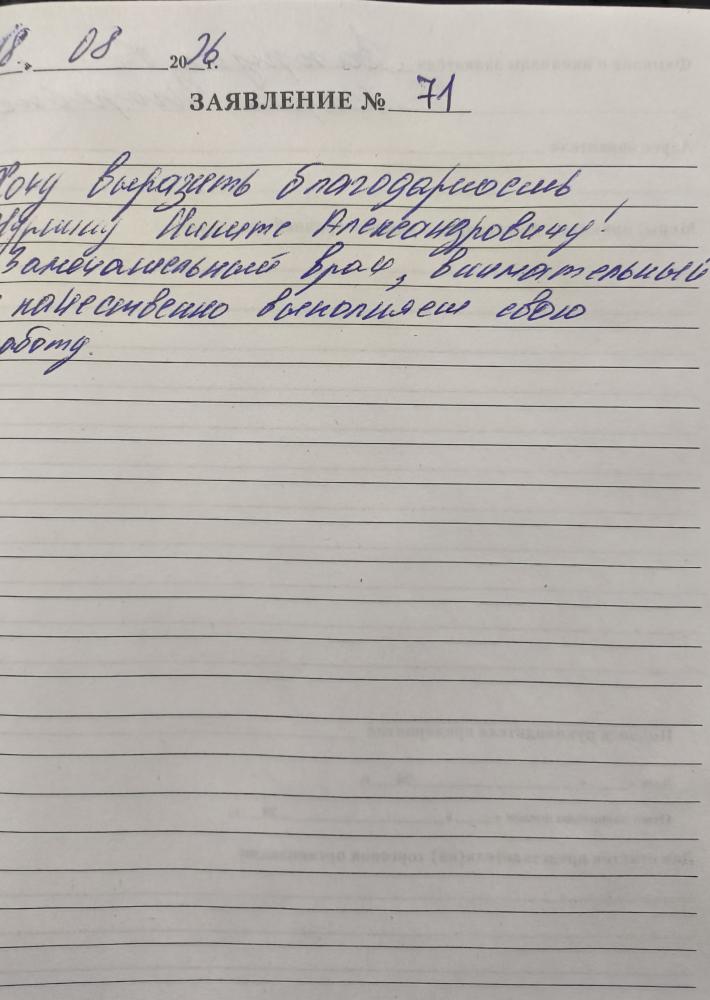 18. 08 2026 г.
ЗАЯВЛЕНИЕ № 71
Хочу выразить благодарность
Никите Александровичу!
Замечательный врач, внимательный
качественно выполняет свою
работу.